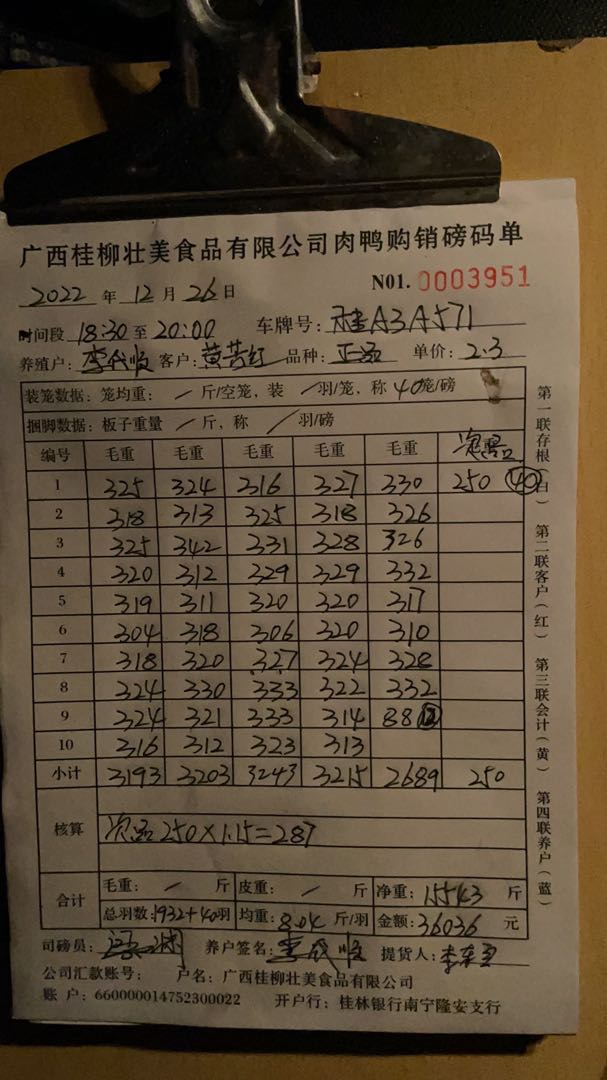 广西桂柳壮美食品有限公司肉鸭购销磅码单
2022 年 12 月 26 日 N01. 0003951
时间段 18:30 至 20:00 车牌号: 桂A3A571
养殖户: 李代顺 客户: 黄苦红 品种: 正品 单价: 2.3
装笼数据: 笼均重: / 斤/空笼, 装 / 羽/笼, 称 40 笼/磅
捆脚数据: 板子重量 / 斤, 称 / 羽/磅
编号 毛重 毛重 毛重 毛重 毛重 次品
1 325 324 316 327 330 250 40
2 318 313 325 318 326
3 325 342 331 328 326
4 320 312 329 329 332
5 319 311 320 320 317
6 304 318 306 320 310
7 318 320 327 324 328
8 324 330 333 322 332
9 324 321 333 314 88 12
10 316 312 323 313
小计 3193 3203 3243 3215 2689 250
核算 次品 250×1.15=287
合计 毛重: / 斤 皮重: / 斤 净重: 15543 斤
总羽数: 1932+40羽 均重: 8.04 斤/羽 金额: 36036 元
司磅员: 养户签名: 李代顺 提货人:
公司汇款账号: 户名: 广西桂柳壮美食品有限公司
账 户: 660000014752300022 开户行: 桂林银行南宁隆安支行
第一联存根(白) 第二联客户(红) 第三联会计(黄) 第四联养户(蓝)